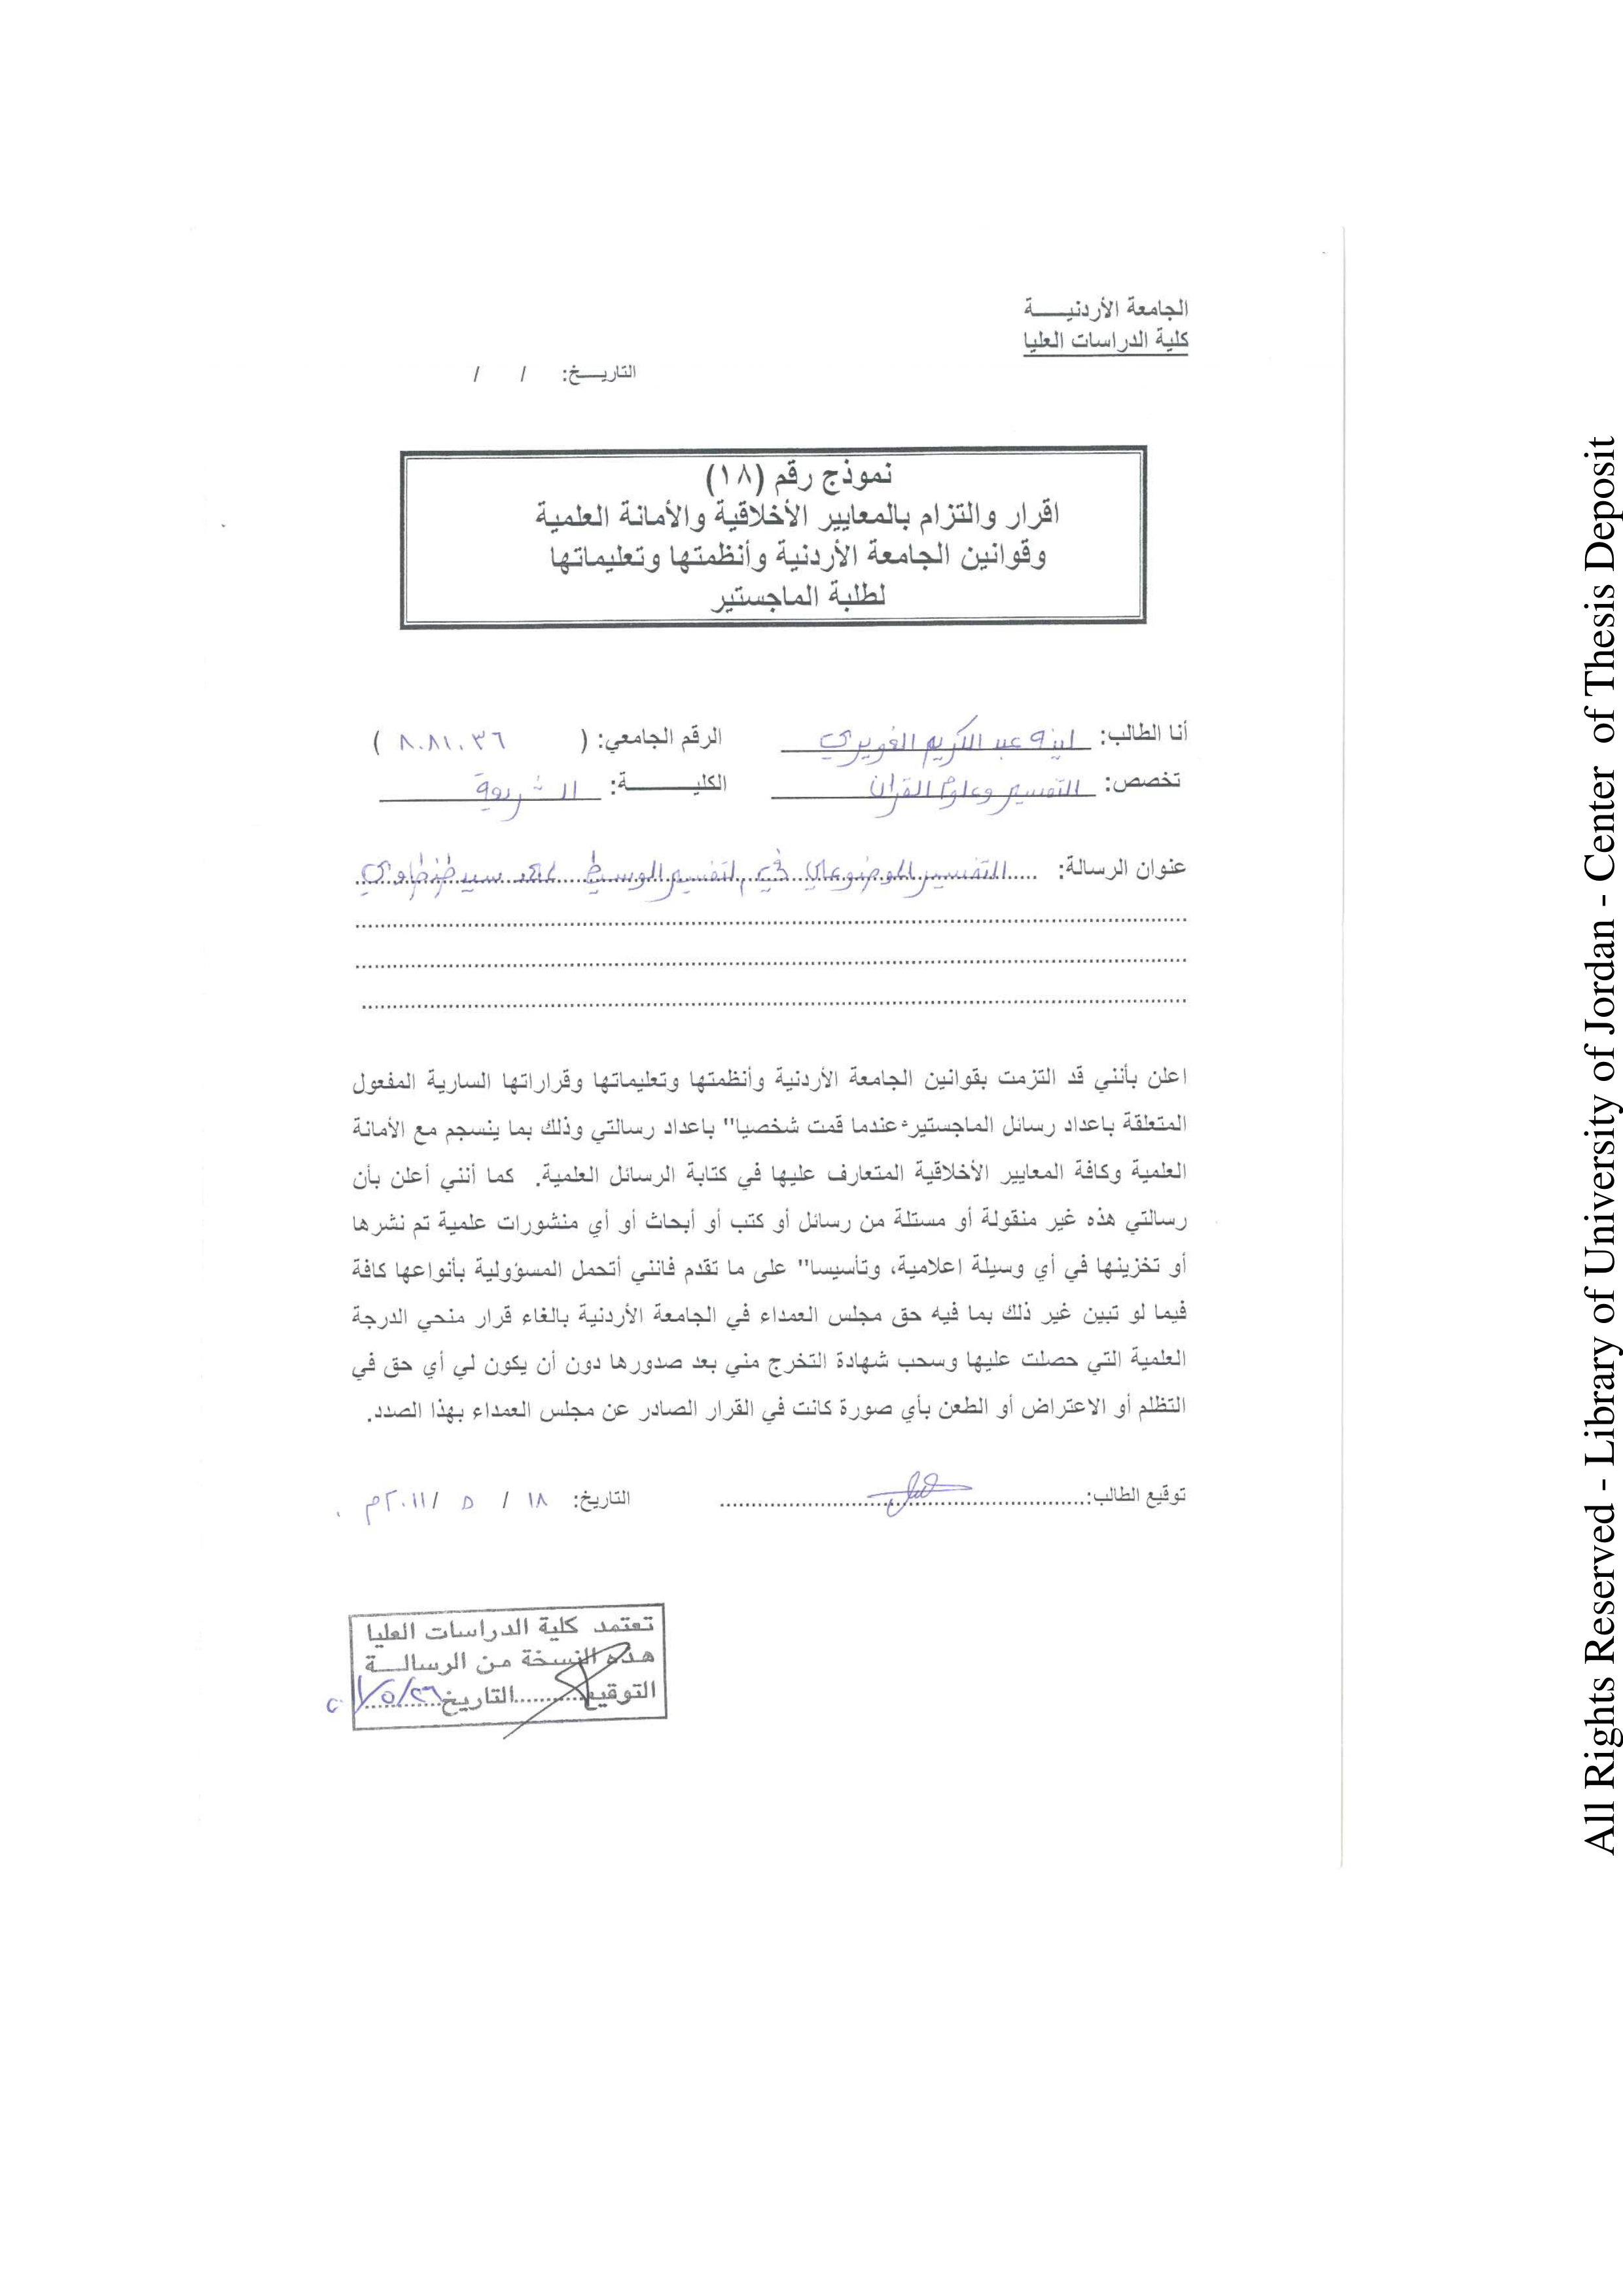 الجامعة الأردنيـــــة
كلية الدراسات العليا
التاريـــخ: / /
نموذج رقم (١٨)
اقرار والتزام بالمعايير الأخلاقية والأمانة العلمية
وقوانين الجامعة الأردنية وأنظمتها وتعليماتها
لطلبة الماجستير
أنا الطالب: عبد الكريم الرقم الجامعي: ( ٨٠٨١٠٣٦ )
تخصص: التفسير وعلوم القرآن الكليـــــــة: الشريعة
عنوان الرسالة: التفسير الموضوعي في التفسير الوسيط سيد طنطاوي
اعلن بأنني قد التزمت بقوانين الجامعة الأردنية وأنظمتها وتعليماتها وقراراتها السارية المفعول
المتعلقة باعداد رسائل الماجستير عندما قمت شخصيا" باعداد رسالتي وذلك بما ينسجم مع الأمانة
العلمية وكافة المعايير الأخلاقية المتعارف عليها في كتابة الرسائل العلمية. كما أنني أعلن بأن
رسالتي هذه غير منقولة أو مستلة من رسائل أو كتب أو أبحاث أو أي منشورات علمية تم نشرها
أو تخزينها في أي وسيلة اعلامية، وتأسيسا" على ما تقدم فانني أتحمل المسؤولية بأنواعها كافة
فيما لو تبين غير ذلك بما فيه حق مجلس العمداء في الجامعة الأردنية بالغاء قرار منحي الدرجة
العلمية التي حصلت عليها وسحب شهادة التخرج مني بعد صدورها دون أن يكون لي أي حق في
التظلم أو الاعتراض أو الطعن بأي صورة كانت في القرار الصادر عن مجلس العمداء بهذا الصدد.
توقيع الطالب: التاريخ: ١٨ / ٥ / ٢٠١١م
تعتمد كلية الدراسات العليا
هذه النسخة من الرسالـــة
التوقيع..........التاريخ
All Rights Reserved - Library of University of Jordan - Center of Thesis Deposit